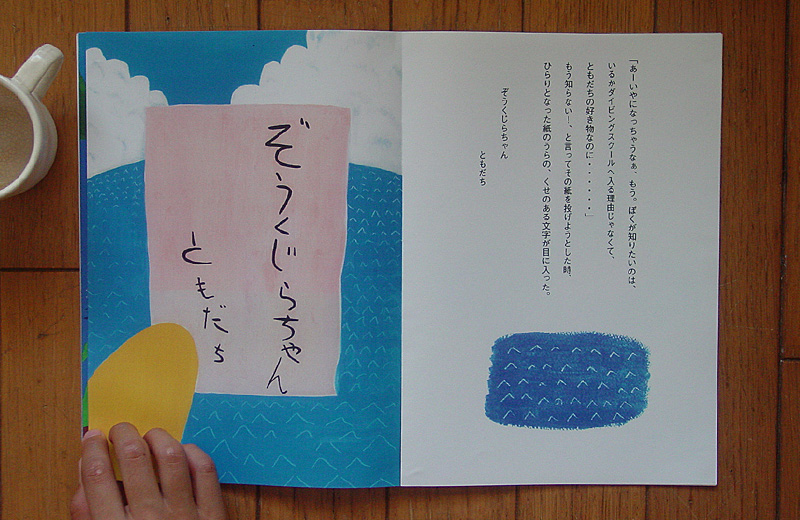 「あーいやになっちゃうなぁ、もう。ぼくが知りたいのは、
いるかダイビングスクールへ入る理由じゃなくて、
ともだちの好き物なのに・・・・・・」
もう知らない！、と言ってその紙を投げようとした時、
ひらりとなった紙のうらの、くせのある文字が目に入った。
ぞうくじらちゃん
ともだち
ぞうくじらちゃん
ともだち